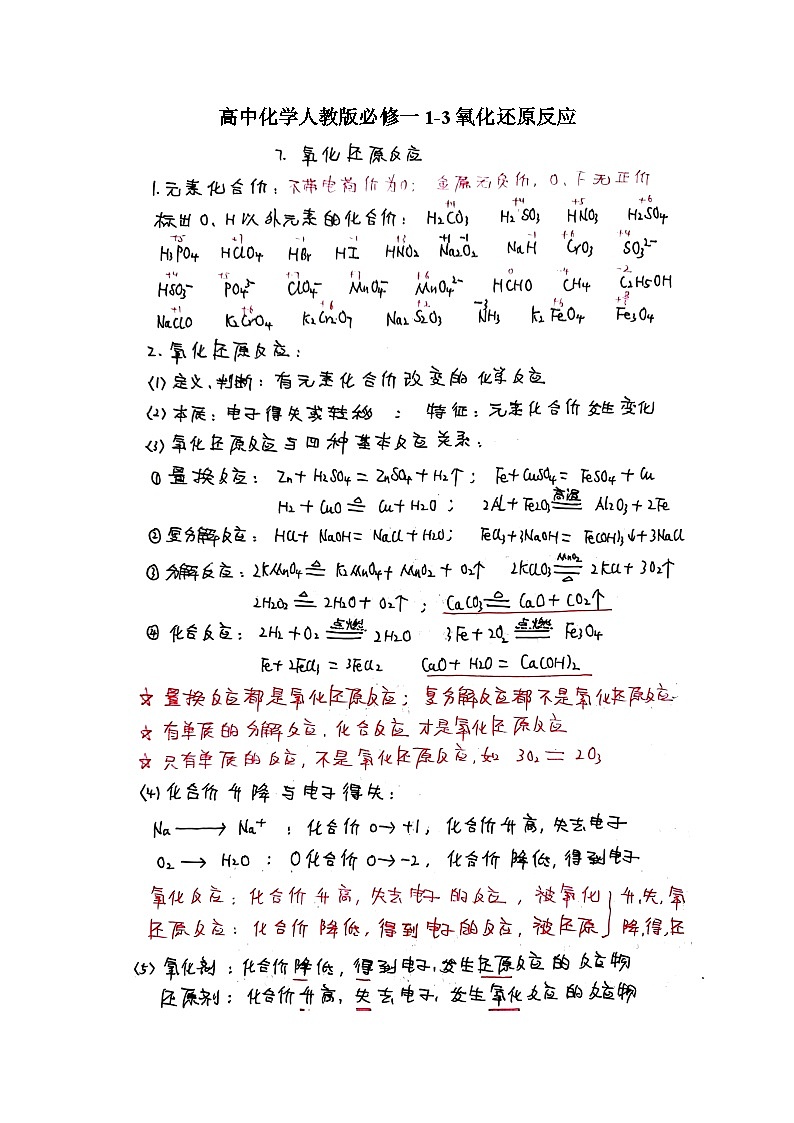 高中化学人教版必修一 1-3 氧化还原反应
7. 氧化还原反应
1. 元素化合价: 不带电荷价为0; 金属无负价, O、F无正价
标出O、H以外元素的化合价: H2CO3 +4 H2SO3 +4 HNO3 +5 H2SO4 +6
H3PO4 +5 HClO4 +7 HBr -1 HI -1 HNO2 +3 Na2O2 +1 -1 NaH -1 CrO3 +6 SO3²⁻ +4
HSO3⁻ +4 PO4³⁻ +5 ClO4⁻ +7 MnO4⁻ +7 MnO4²⁻ +6 HCHO 0 CH4 -4 C2H5OH -2
NaClO +1 K2CrO4 +6 K2Cr2O7 +6 Na2S2O3 +2 NH3 -3 K2FeO4 +6 Fe3O4
2. 氧化还原反应:
(1) 定义、判断: 有元素化合价改变的化学反应
(2) 本质: 电子得失或转移 ; 特征: 元素化合价发生变化
(3) 氧化还原反应与四种基本反应关系:
① 置换反应: Zn+H2SO4=ZnSO4+H2↑; Fe+CuSO4=FeSO4+Cu
H2+CuO=△=Cu+H2O ; 2Al+Fe2O3=高温=Al2O3+2Fe
② 复分解反应: HCl+NaOH=NaCl+H2O; FeCl3+3NaOH=Fe(OH)3↓+3NaCl
③ 分解反应: 2KMnO4=△=K2MnO4+MnO2+O2↑ 2KClO3=MnO2/△=2KCl+3O2↑
2H2O2=△=2H2O+O2↑ ; CaCO3=△=CaO+CO2↑
④ 化合反应: 2H2+O2=点燃=2H2O 3Fe+2O2=点燃=Fe3O4
Fe+2FeCl3=3FeCl2 CaO+H2O=Ca(OH)2
☆ 置换反应都是氧化还原反应; 复分解反应都不是氧化还原反应
☆ 有单质的分解反应、化合反应才是氧化还原反应
☆ 只有单质的反应, 不是氧化还原反应, 如 3O2=2O3
(4) 化合价升降与电子得失:
Na→Na⁺ : 化合价0→+1, 化合价升高, 失去电子
O2→H2O : O化合价0→-2, 化合价降低, 得到电子
氧化反应: 化合价升高, 失去电子的反应, 被氧化 } 升, 失, 氧
还原反应: 化合价降低, 得到电子的反应, 被还原 } 降, 得, 还
(5) 氧化剂: 化合价降低, 得到电子, 发生还原反应的反应物
还原剂: 化合价升高, 失去电子, 发生氧化反应的反应物